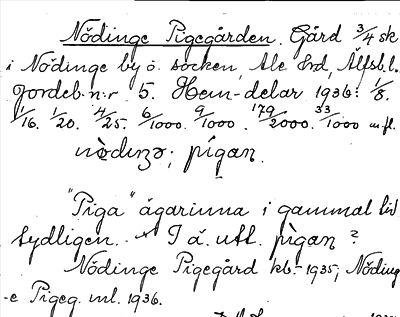 Nödinge Pigegården. Gård 3/4 sk
i Nödinge by ö. socken, Ale hrd, Älfsb.l.
Jordeb.n:r 5. Hem.-delar 1936: 1/8.
1/16. 1/20. 4/25. 6/1000. 9/1000. 179/2000. 33/1000 m.fl.
nòdıŋə; pígan.
"Piga" ägarinna i gammal tid
tydligen. I ä. utt. pìgan?
Nödinge Pigegård kb. 1935, Nöding
-e Pigeg. ml. 1936.